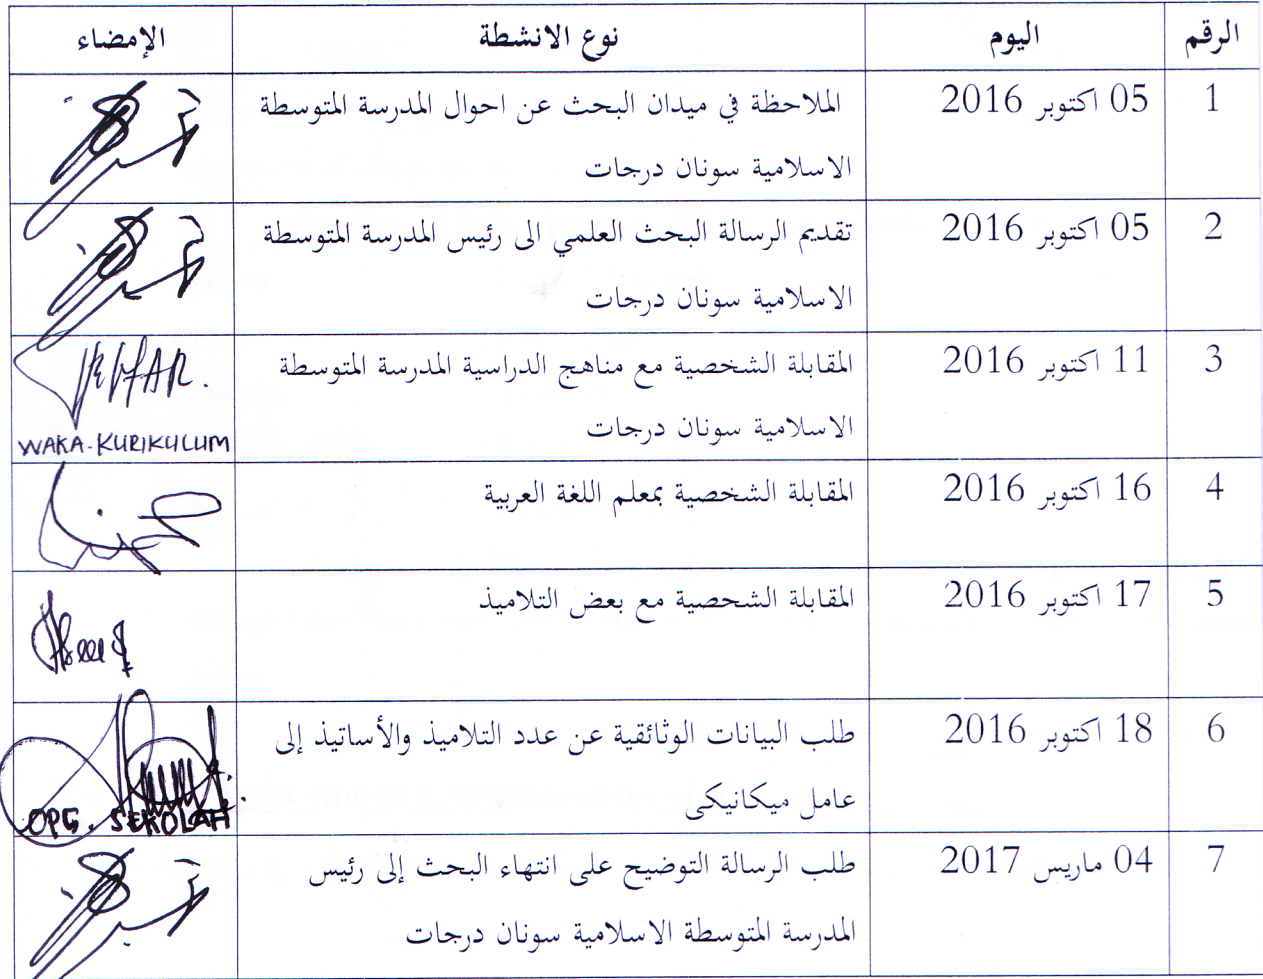 الرقم اليوم نوع الانشطة الإمضاء
1 05 اكتوبر 2016 الملاحظة في ميدان البحث عن احوال المدرسة المتوسطة
الاسلامية سونان درجات
2 05 اكتوبر 2016 تقديم الرسالة البحث العلمي الى رئيس المدرسة المتوسطة
الاسلامية سونان درجات
3 11 اكتوبر 2016 المقابلة الشخصية مع مناهج الدراسية المدرسة المتوسطة
الاسلامية سونان درجات
WAKA-KURIKULUM
4 16 اكتوبر 2016 المقابلة الشخصية بمعلم اللغة العربية
5 17 اكتوبر 2016 المقابلة الشحصية مع بعض التلاميذ
6 18 اكتوبر 2016 طلب البيانات الوثائقية عن عدد التلاميذ والأساتيذ إلى
عامل ميكانيكى
OPS. SEKOLAH
7 04 ماريس 2017 طلب الرسالة التوضيح على انتهاء البحث إلى رئيس
المدرسة المتوسطة الاسلامية سونان درجات